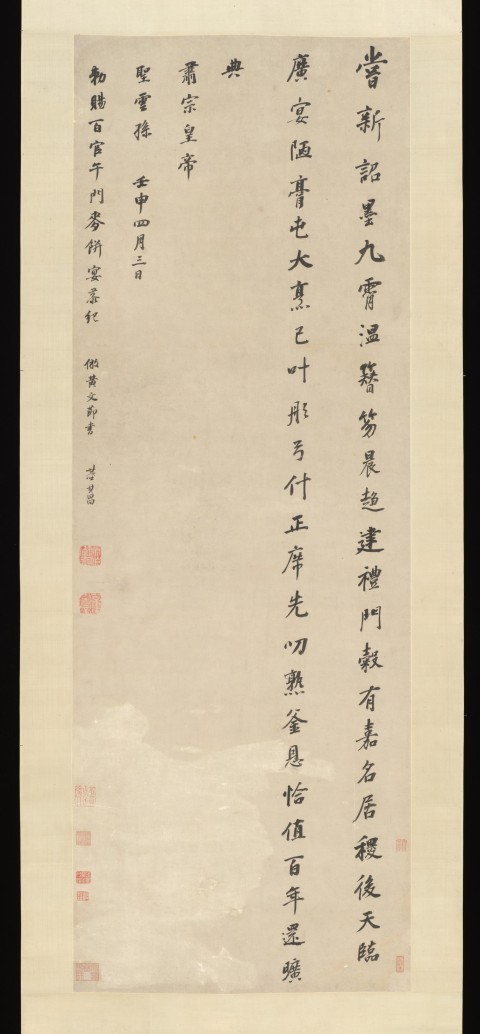 嘗新詔墨九霄溫簪笏晨趨建禮門穀有嘉名居稷後天臨
廣宴陋膏屯大烹已叶彤弓什正席先叨熟釜恩恰值百年還曠
典
肅宗皇帝
聖雲孫 壬申四月三日
勅賜百官午門麥餅宴恭紀 倣黃文節書 董其昌